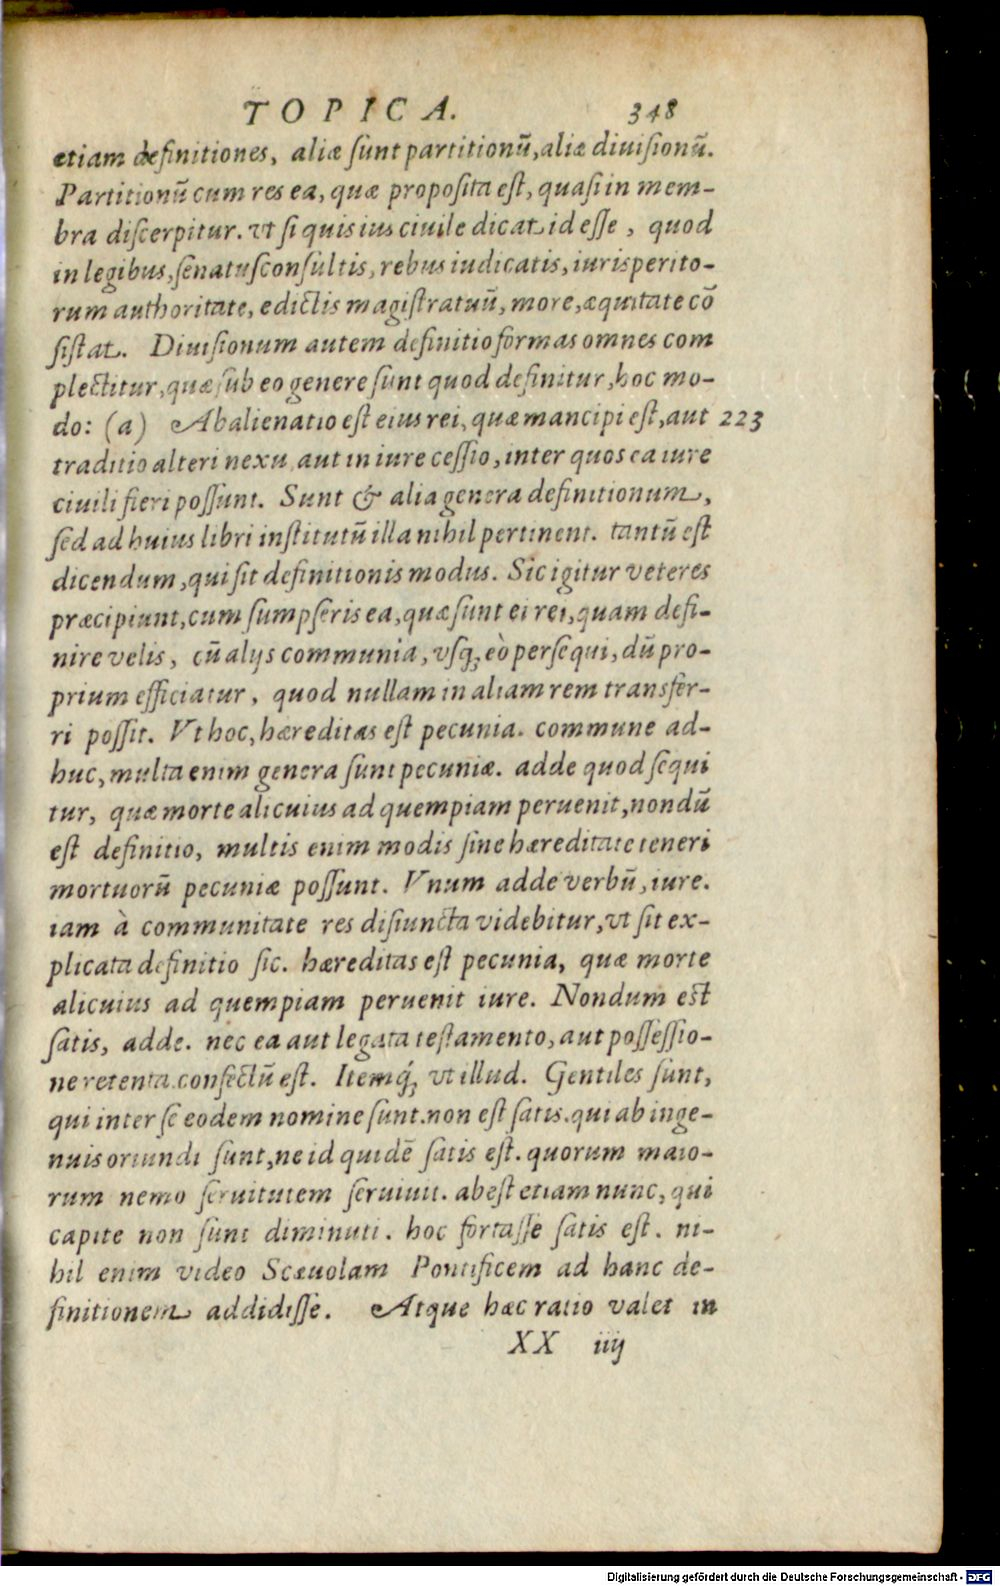 TOPICA. 348
etiam definitiones, aliæ sunt partitionũ, aliæ diuisionũ.
Partitionũ cum res ea, quæ proposita est, quasi in mem-
bra discerpitur. vt si quis ius ciuile dicat id esse, quod
in legibus, senatusconsultis, rebus iudicatis, iurisperito-
rum authoritate, edictis magistratuũ, more, æquitate cõ
sistat. Diuisionum autem definitio formas omnes com
plectitur, quæ sub eo genere sunt quod definitur, hoc mo-
do: (a) Abalienatio est eius rei, quæ mancipi est, aut 223
traditio alteri nexu aut in iure cessio, inter quos ea iure
ciuili fieri possunt. Sunt & alia genera definitionum,
sed ad huius libri institutũ illa nihil pertinent. tantũ est
dicendum, qui sit definitionis modus. Sic igitur veteres
præcipiunt, cum sumpseris ea, quæ sunt ei rei, quam defi-
nire velis, cũ alijs communia, vsq; eò persequi, dũ pro-
prium efficiatur, quod nullam in aliam rem transfer-
ri possit. Vt hoc, hæreditas est pecunia. commune ad-
huc, multa enim genera sunt pecuniæ. adde quod sequi
tur, quæ morte alicuius ad quempiam peruenit, nondũ
est definitio, multis enim modis sine hæreditate teneri
mortuorũ pecuniæ possunt. Vnum adde verbũ, iure.
iam à communitate res disiuncta videbitur, vt sit ex-
plicata definitio sic. hæreditas est pecunia, quæ morte
alicuius ad quempiam peruenit iure. Nondum est
satis, adde. nec ea aut legata testamento, aut possessio-
ne retenta. confectũ est. Itemq́; vt illud. Gentiles sunt,
qui inter se eodem nomine sunt. non est satis. qui ab inge-
nuis oriundi sunt, ne id quidẽ satis est. quorum maio-
rum nemo seruitutem seruiuit. abest etiam nunc, qui
capite non sunt diminuti. hoc fortasse satis est. ni-
hil enim video Scæuolam Pontificem ad hanc de-
finitionem addidisse. Atque hæc ratio valet in
XX iiij
Digitalisierung gefördert durch die Deutsche Forschungsgemeinschaft - DFG